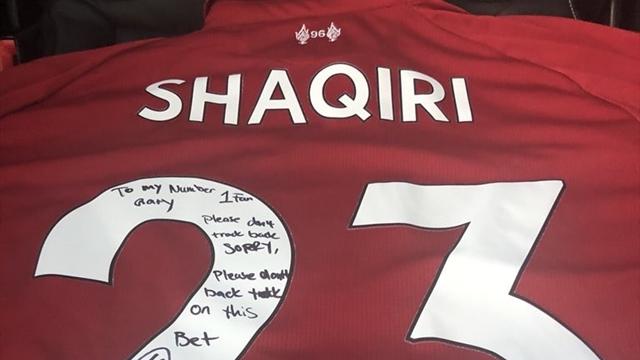 96
SHAQIRI
23
To my Number 1 Fan
Gary
Please dont
track back
SORRY,
Please dont
back track
on this
Bet